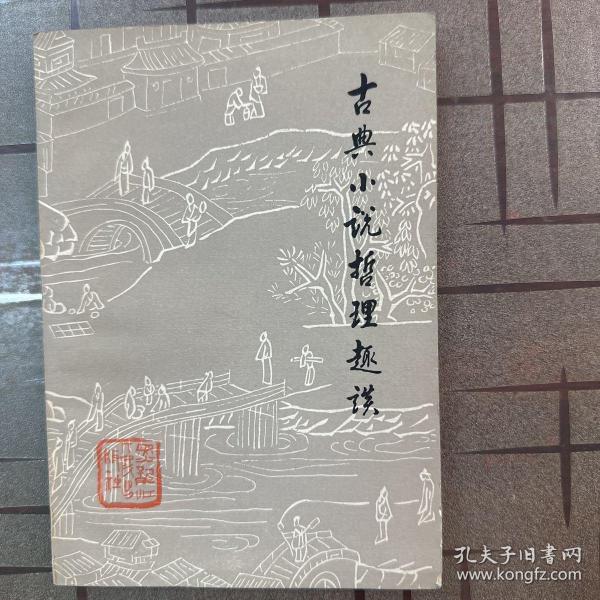 古典小说哲理趣谈
孔夫子旧书网
www.kongfz.com